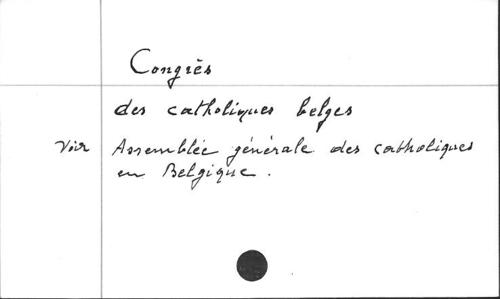 Congrès
des catholiques belges
Voir Assemblée générale des catholiques
en Belgique.